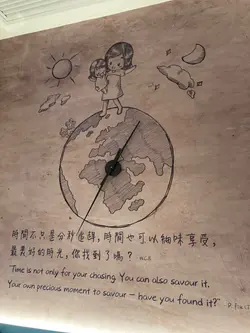 時間不只是分秒追逐，時間也可以細味享受，
最美好的時光，你找到了嗎？
"Time is not only for your chasing. You can also savour it.
Your own precious moment to savour – have you found it?"